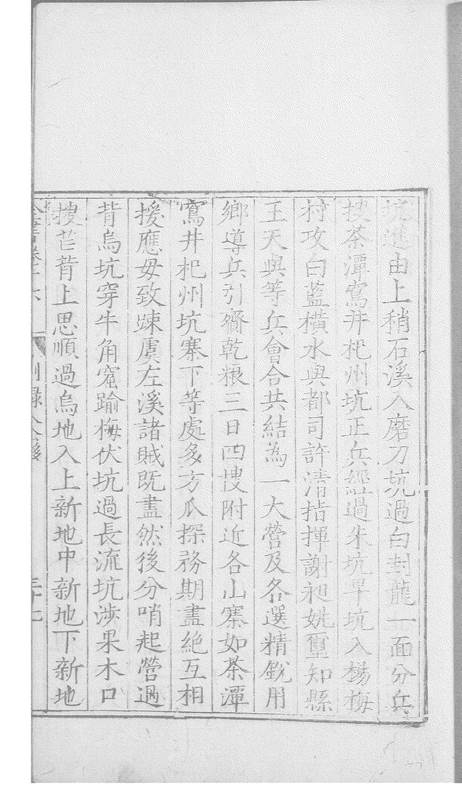 坑進由上稍石溪入磨刀坑過白封龍一面分兵
搜茶潭窵井杞州坑正兵經過朱坑早坑入楊梅
村攻白藍橫水與都司許清指揮謝昶姚璽知縣
王天與等兵會合共結為一大營及各選精銳用
鄉導兵引齎乾粮三日四搜附近各山寨如茶潭
窵井杞州坑寨下等處多方爪探務期盡絕互相
援應毋致疎虞左溪諸賊既盡然後分哨起營過
背烏坑穿牛角窟踰梅伏坑過長流坑涉果木口
搜芒背上思順過烏地入上新地中新地下新地